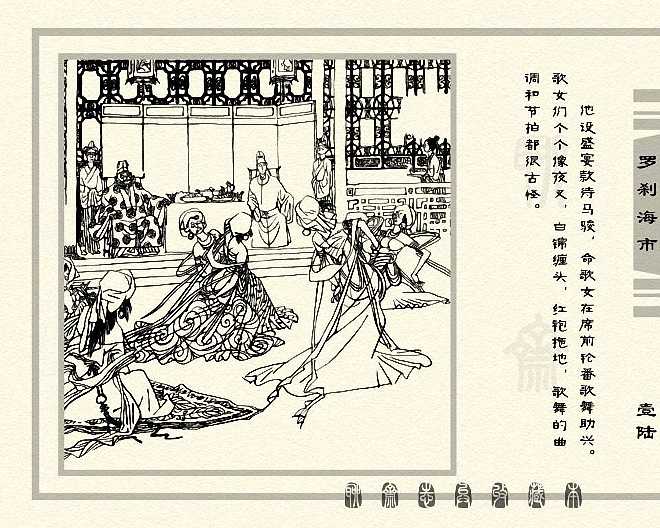 他设盛宴款待马骏，命歌女在席前轮番歌舞助兴。
歌女们个个像夜叉，白锦缠头，红袍拖地，歌舞的曲
调和节拍都很古怪。
罗刹海市
壹陆